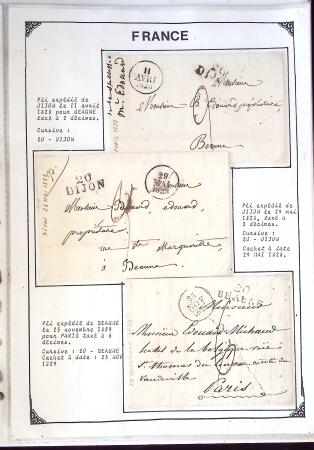 FRANCE
Pli expédié de
DIJON le 11 avril
1828 pour BEAUNE
taxé à 2 décimes.
Cursive :
20 - DIJON
Mr Edouard
11
AVRI
1828
20
DIJON
Monsieur
Edouard propriétaire,
Beaune
20
DIJON
29
MAI
1828
Monsieur
Edouard,
propriétaire
rue de
à Beaune
Pli expédié de
DIJON le 29 mai
1828, taxé à
2 décimes.
Cursive :
20 - DIJON
Cachet à date
29 MAI 1828.
20
BEAUNE
Monsieur
Monsieur Edouard Michaud
hotel de la Belgique rue
St thomas du
vaudeville
Paris
Pli expédié de BEAUNE
le 25 novembre 1829
pour PARIS taxé à 6
décimes.
Cursive : 20 - BEAUNE
Cachet à date : 25 NOV
1829